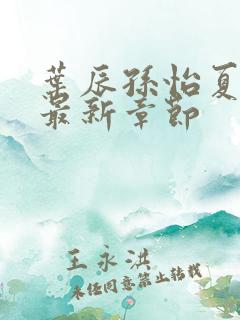 葉辰孫怡夏
最新章節
王永洪
未经同意禁止转载